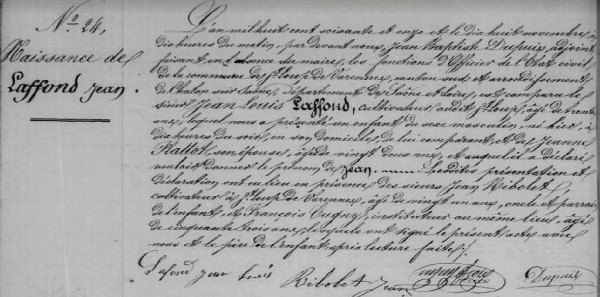 No. 24,
Naissance de
Laffond Jean
L'an mil huit cent soixante et onze et le dix huit novembre, à
dix heures du matin, par devant nous, Jean Baptiste Dupuis, adjoint
faisant, en l'absence du maire, les fonctions d'Officier de l'Etat civil
de la commune de St. Loup de Varennes, canton sud et arrondissement
de Chalon sur Saône, département de Saône et Loire, est comparu le
sieur Jean Louis Laffond, cultivateur, audit St. Loup, âgé de trente
ans, lequel nous a présenté un enfant du sexe masculin, né hier, à
dix heures du soir, en son domicile, de lui comparant, et de Jeanne
son épouse, âgée de vingt deux ans, et auquel il a déclaré
vouloir donner le prénom de Jean. Lesdites présentation et
déclaration ont eu lieu en présence des sieurs Jean Ribolet,
cultivateur à St. Loup de Varennes, âgé de vingt un ans, oncle et parrain
de l'enfant, et François Cugny, instituteur au même lieu, âgé
de cinquante trois ans, lesquels ont signé le présent acte avec
nous et le père de l'enfant après lecture faite.
Lafond Jean Louis
Ribolet Jean
Dupuis